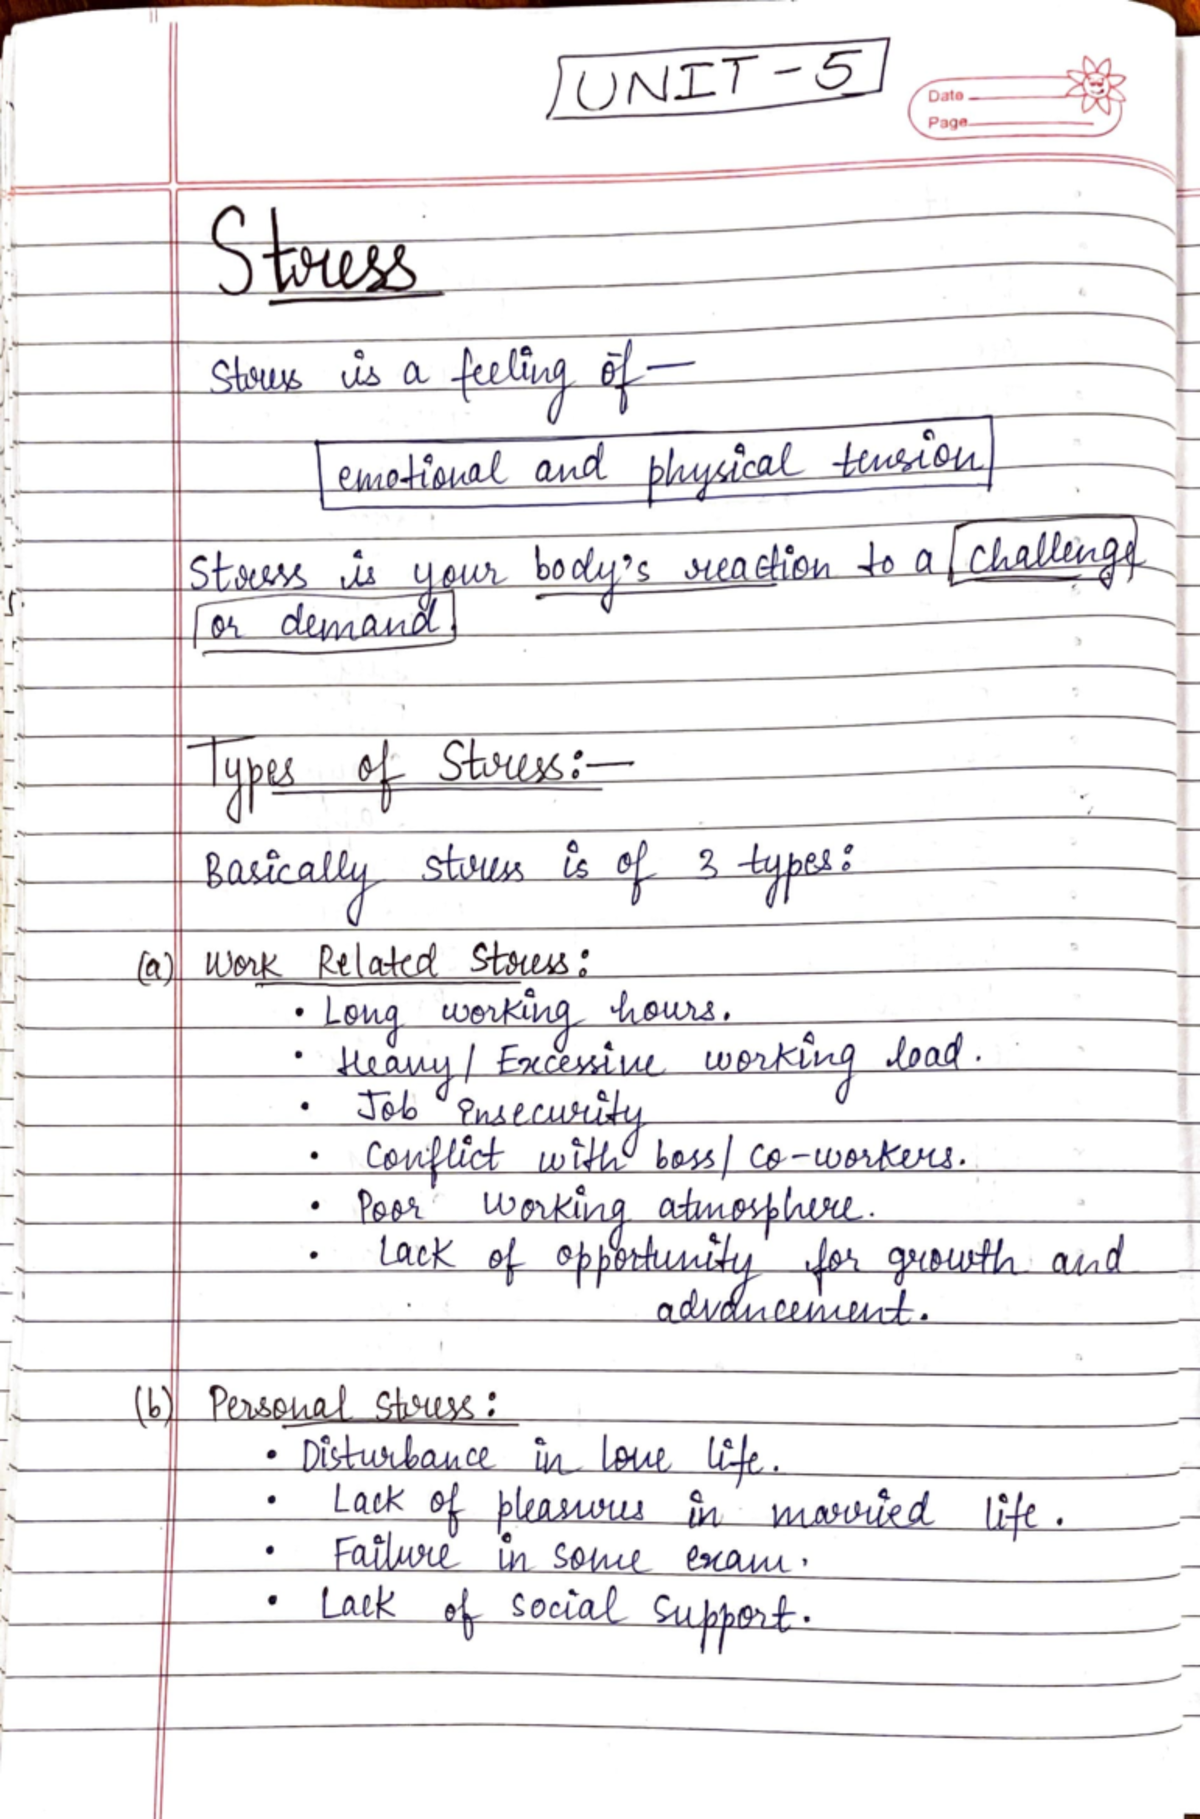 UNIT-5
Date
Page
Stress
Stress is a feeling of—
emotional and physical tension
Stress is your body's reaction to a challenge
or demand.
Types of Stress:—
Basically stress is of 3 types:
(a) Work Related Stress:
• Long working hours.
• Heavy/Excessive working load.
• Job insecurity
• Conflict with boss/co-workers.
• Poor working atmosphere.
• Lack of opportunity for growth and
advancement.
(b) Personal Stress:
• Disturbance in love life.
• Lack of pleasures in married life.
• Failure in some exam.
• Lack of social support.